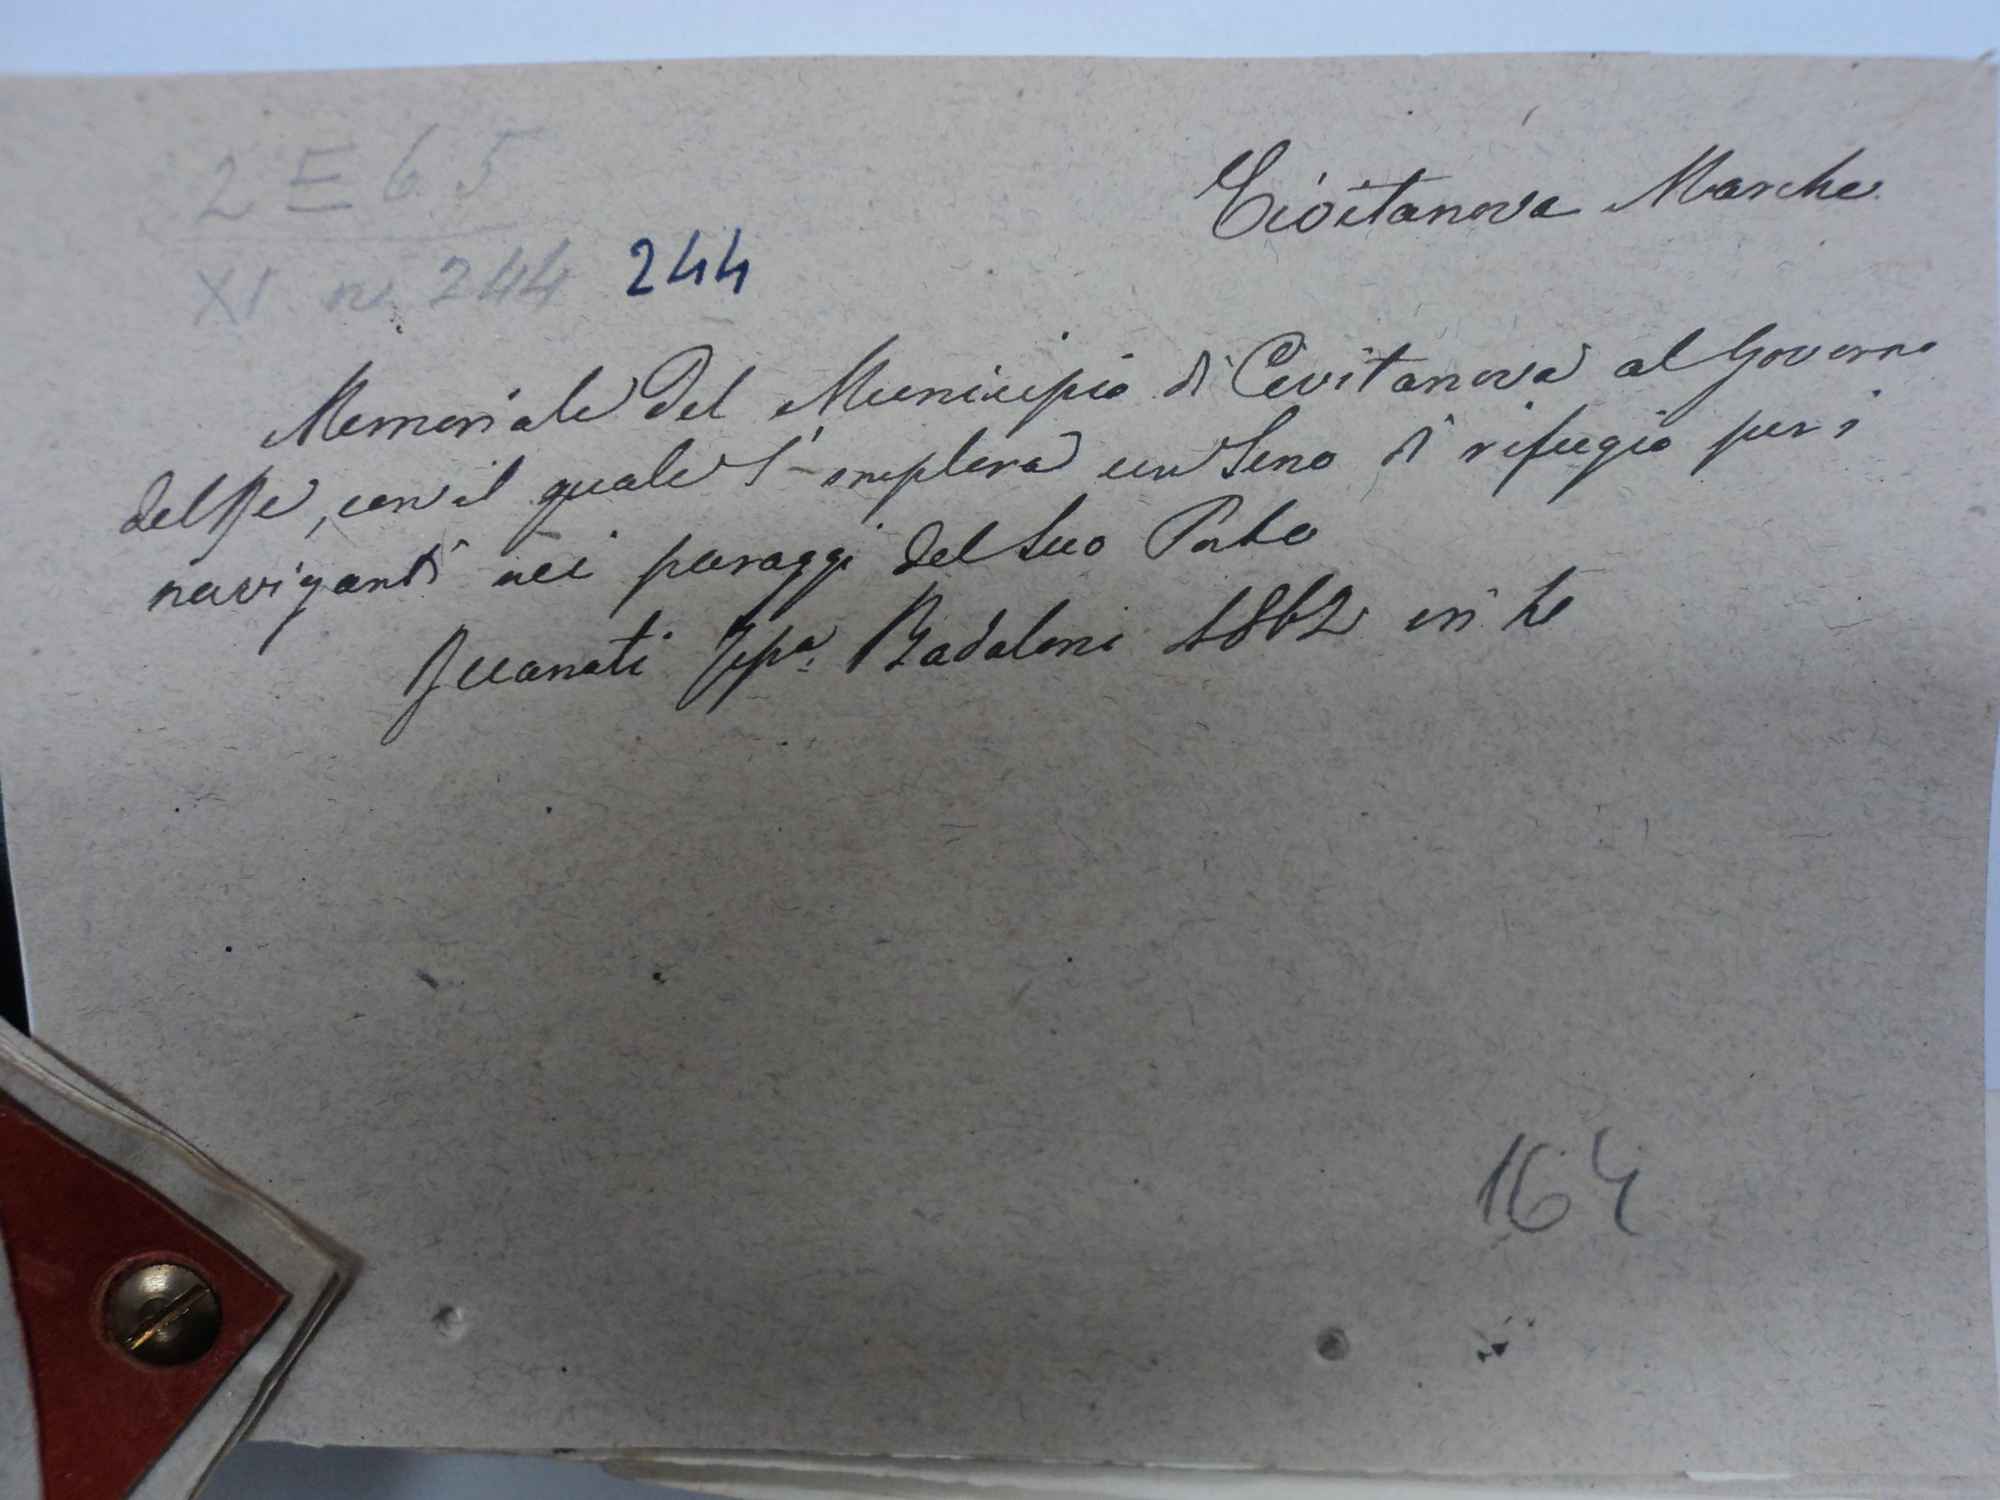 2 E 6 5
XI n. 244 244
Civitanova Marche
Memoriale del Municipio di Civitanova al Governo
del Re, con il quale s'implora un Seno di rifugio per i
naviganti nei paraggi del suo Porto
Recanati Tipa. Badaloni 1862 in
164